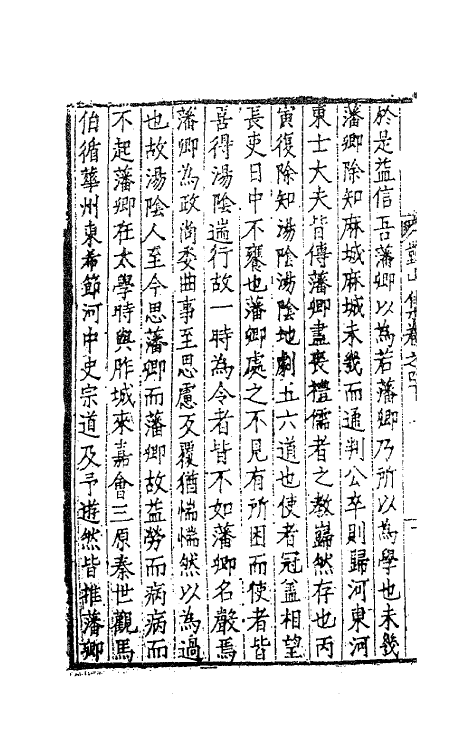 於是益信吾藩卿以為若藩卿乃所以為學也未幾
藩卿除知麻城麻城未幾而通判公卒則歸河東河
東士大夫皆傳藩卿盡喪禮儒者之教巋然存也丙
寅復除知湯陰湯陰地劇五六道也使者冠盖相望
長吏日中不饔也藩卿處之不見有所困而使者皆
善得湯陰遄行故一時為令者皆不如藩卿名嚴焉
藩卿為政尚委曲事至思慮反覆猶惴惴然以為過
也故湯陰人至今思藩卿而藩卿故益勞而病病而
不起藩卿在太學時與胙城來嘉會三原秦世觀馬
伯循華州東希節河中史宗道及予遊然皆推藩卿